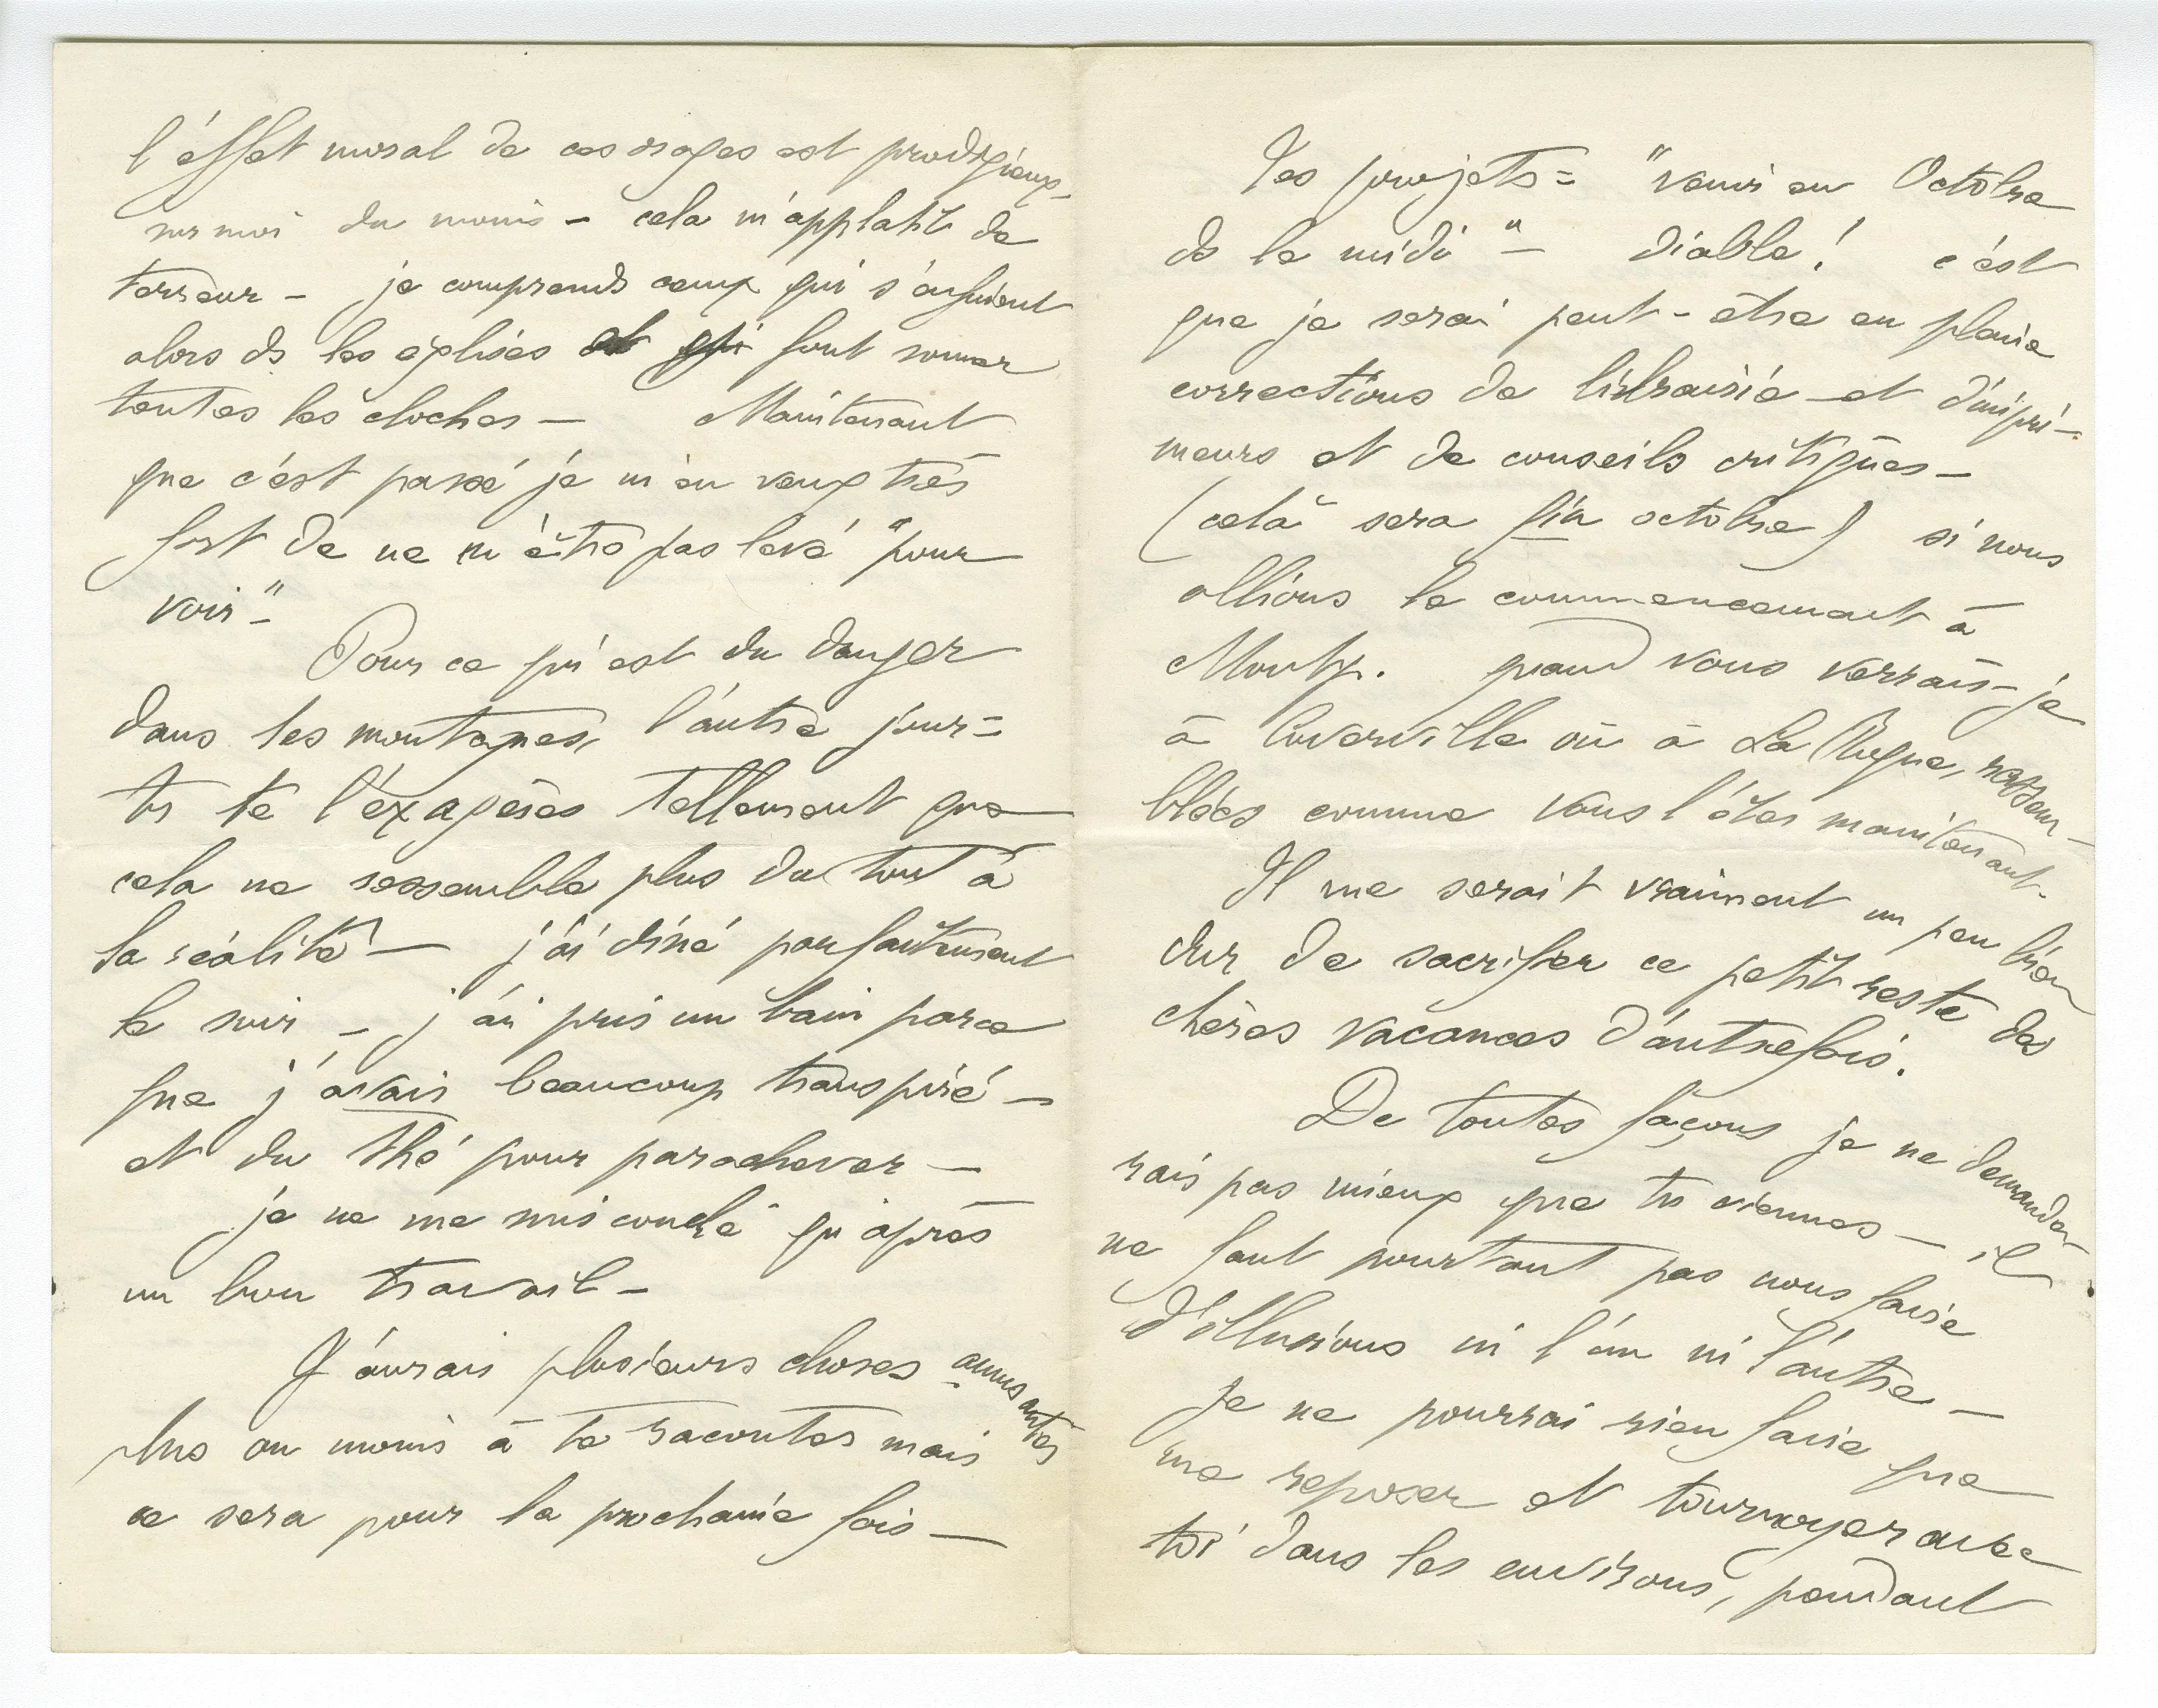 l'éffet moral de ces orages est prodigieux –
sur moi du moins – cela m'applatit de
terreur – je comprends ceux qui s'enfuient
alors ds les églises et qui font sonner
toutes les cloches – Maintenant
que c'est passé je m'en veux très
fort de ne m'être pas levé "pour
voir" –
Pour ce qui est du danger
dans les montagnes, l'autre jour –
tu te l'éxagères tellement que
cela ne ressemble plus du tout à
la réalité – j'ai diné parfaitement
le soir – j'ai pris un bain parce
que j'avais beaucoup transpiré –
et du thé pour parachever –
je ne me suis couché qu'après
un bon travail –
J'aurais plusieurs choses amusantes
plus ou moins à te raconter mais
ce sera pour la prochaine fois –
Tes projets = "venir en Octobre
ds le midi" – diable ! c'est
que je serai peut-être en pleine
corrections de librairie – et d'impri-
meurs et de conseils critiques –
(cela sera fin octobre) si nous
allions le commencement à
Montp. quand vous verrais-je
à Cuverville ou à La Roque, rassem-
blées comme vous l'êtes maintenant –
Il me serait vraiment un peu bien
dur de sacrifier ce petit reste des
chères vacances d'autrefois.
De toutes façons je ne demande-
rais pas mieux que tu viennes – il
ne faut pourtant pas nous faire
d'illusions ni l'un ni l'autre –
Je ne pourrai rien faire que
me reposer et tournoyer avec
toi dans les environs, pendant